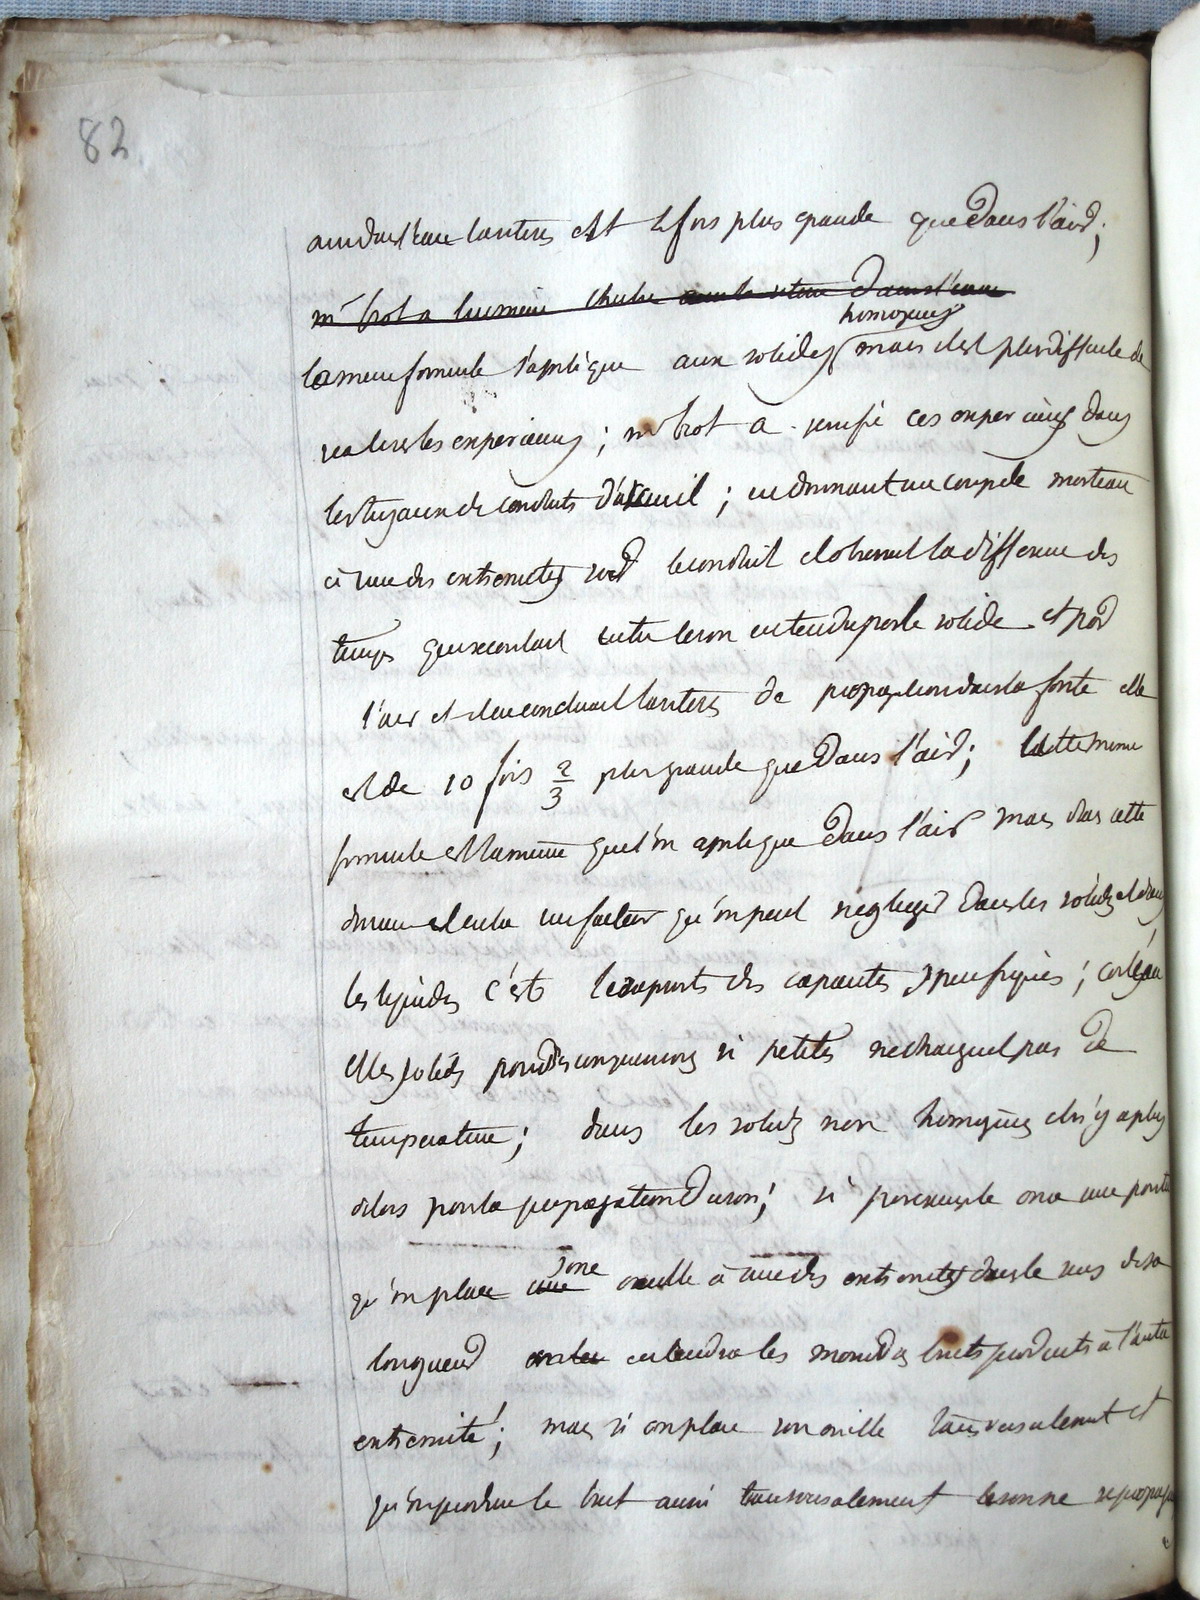 82
ainsi dans l'eau la vitesse est 4 fois plus grande que dans l'air;
mr biot a lui meme cherché dans l'eau
la meme formule s'applique aux solides homogenes mais il est plus difficile de
realiser les experiences; mr biot a verifié ces experiences dans
les tuyaux de conduits d'arcueil; en donnant un coup de marteau
à l'une des extremités du conduit il obtenait la difference des
temps qui s'ecoulait entre le son entendu par le solide et par
l'air et il en concluait la vitesse de propagation dans la fonte elle
est de 10 fois 2/3 plus grande que dans l'air; cette meme
formule est la meme que l'on applique dans l'air mais dans cette
il entre un facteur qu'on peut negliger dans les solides et dans
les liquides c'est le rapport des capacités specifiques; car l'eau
et les solides pour des compressions si petites ne changent pas de
temperature; dans les solides non homogenes il n'y a plus
de lois pour la propagation du son; si par exemple on a une poutre
qu'on place son oreille à une des extremités dans le sens de sa
longueur entendra les moindres bruits produits à l'autre
extremité; mais si on place son oreille transversalement et
qu'on produise le bruit aussi transversalement le son ne se propage